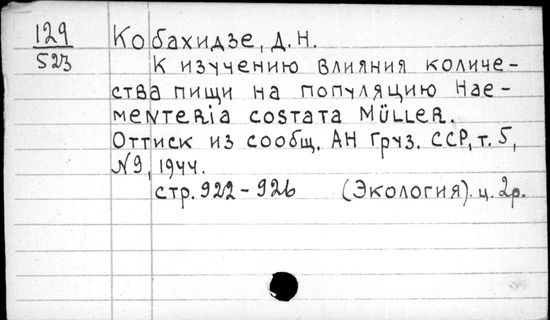 129
523
Кобахидзе, Д. Н.
К изучению влияния количе-
ства пищи на популяцию Hae-
menteria costata Müller.
Оттиск из сообщ. АН Груз. ССР, т. 5,
№9, 1944.
стр. 922-926 (Экология). ц. 2р.